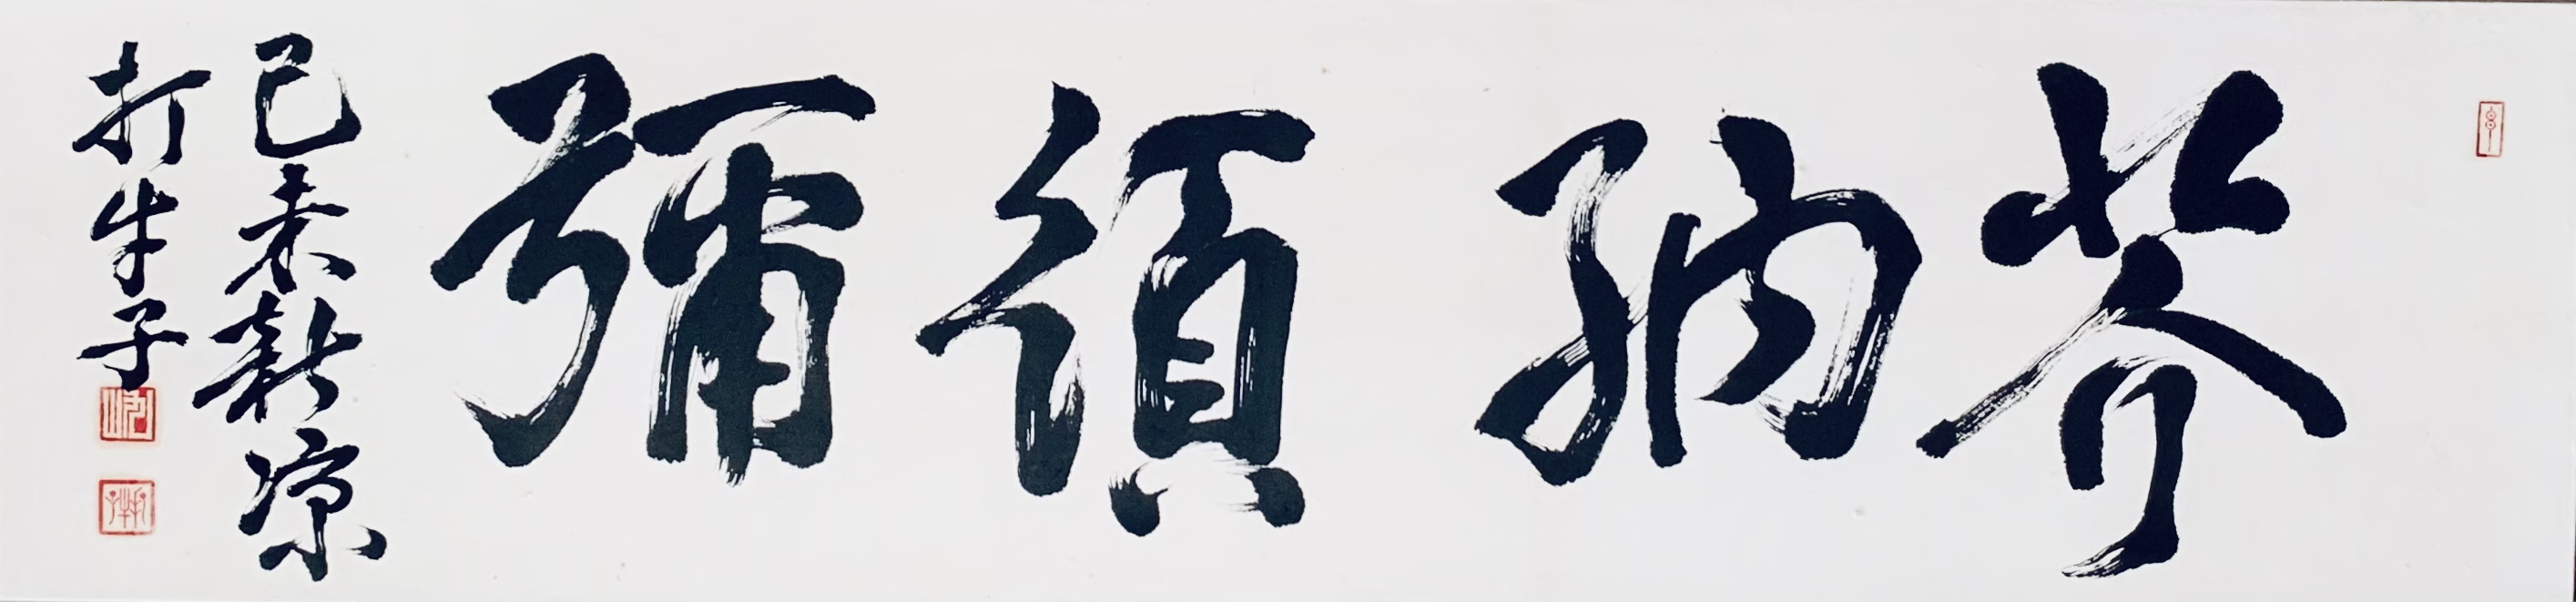 芥納須彌
己未新凉
打牛子